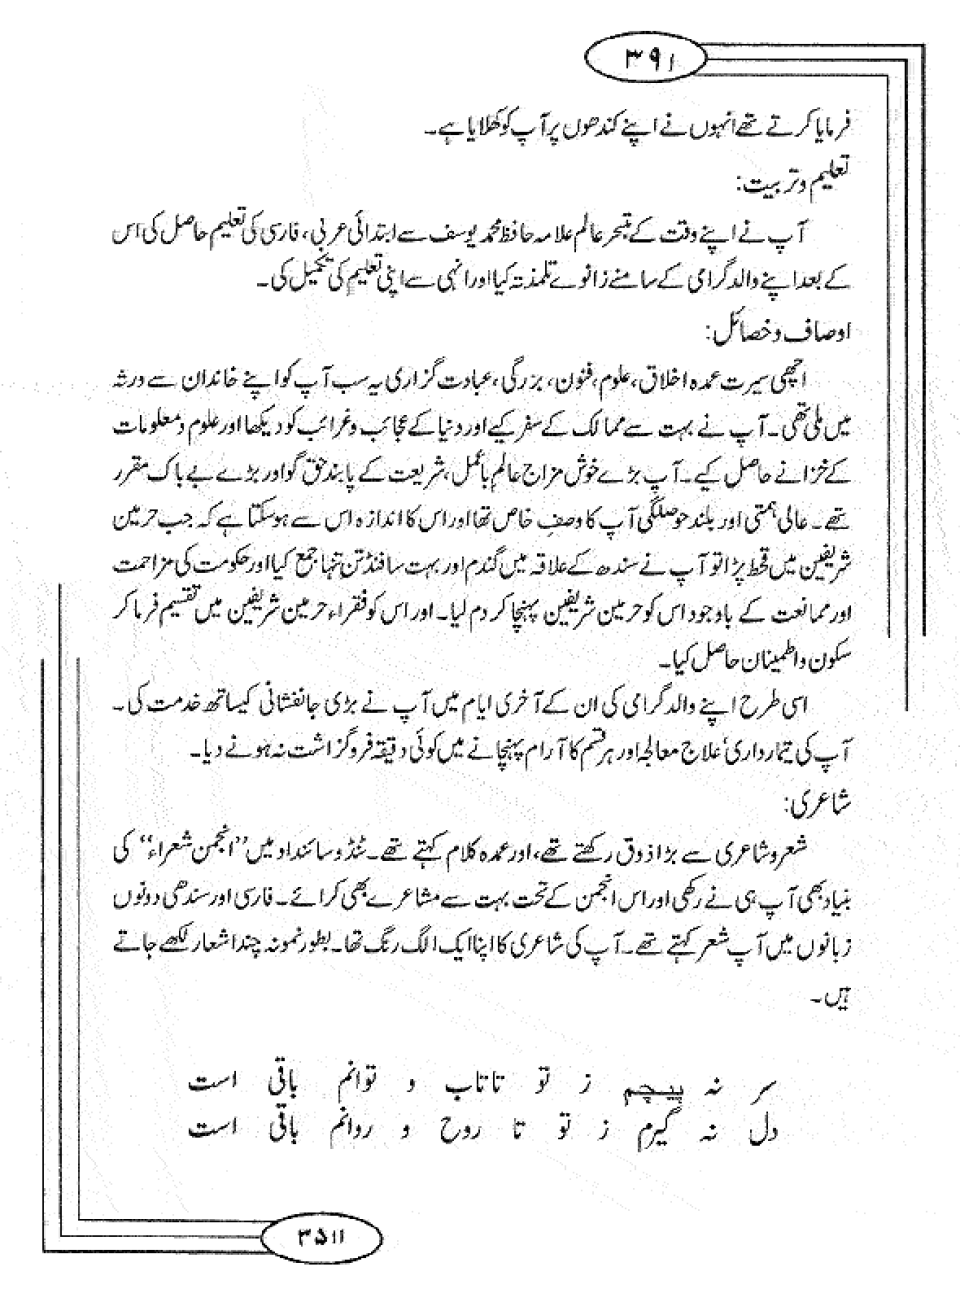 ۳۹۱
فرمایا کرتے تھے انہوں نے اپنے کندھوں پر آپ کو کھلایا ہے۔
تعلیم و تربیت:
آپ نے اپنے وقت کے متبحر عالم علامہ حافظ محمد یوسف سے ابتدائی عربی، فارسی کی تعلیم حاصل کی اس
کے بعد اپنے والد گرامی کے سامنے زانوے تلمذ تہ کیا اور انہی سے اپنی تعلیم کی تکمیل کی۔
اوصاف و خصائل:
اچھی سیرت عمدہ اخلاق، علوم، فنون، بزرگی، عبادت گزاری یہ سب آپ کو اپنے خاندان سے ورثہ
میں ملی تھی۔ آپ نے بہت سے ممالک کے سفر کیے اور دنیا کے عجائب و غرائب کو دیکھا اور علوم و معلومات
کے خزانے حاصل کیے۔ آپ بڑے خوش مزاج عالم باعمل، شریعت کے پابند حق گو اور بڑے بے باک مقرر
تھے۔ عالی ہمتی اور بلند حوصلگی آپ کا وصف خاص تھا اور اس کا اندازہ اس سے ہو سکتا ہے کہ جب حرمین
شریفین میں قحط پڑا تو آپ نے سندھ کے علاقہ میں گندم اور بہت سا فنڈ تن تنہا جمع کیا اور حکومت کی مزاحمت
اور ممانعت کے باوجود اس کو حرمین شریفین پہنچا کر دم لیا۔ اور اس کو فقراء حرمین شریفین میں تقسیم فرما کر
سکون و اطمینان حاصل کیا۔
اسی طرح اپنے والد گرامی کی ان کے آخری ایام میں آپ نے بڑی جانفشانی کیساتھ خدمت کی۔
آپ کی تیمارداری علاج معالجہ اور ہر قسم کا آرام پہنچانے میں کوئی دقیقہ فروگزاشت نہ ہونے دیا۔
شاعری:
شعر و شاعری سے بڑا ذوق رکھتے تھے، اور عمدہ کلام کہتے تھے۔ ٹنڈو سائنداد میں ”انجمن شعراء“ کی
بنیاد بھی آپ ہی نے رکھی اور اس انجمن کے تحت بہت سے مشاعرے بھی کرائے۔ فارسی اور سندھی دونوں
زبانوں میں آپ شعر کہتے تھے۔ آپ کی شاعری کا اپنا ایک الگ رنگ تھا۔ بطور نمونہ چند اشعار لکھے جاتے
ہیں۔
سر نہ پیچم ز تو تا تاب و توانم باقی است
دل نہ گیرم ز تو تا روح و روانم باقی است
۳۵۱۱